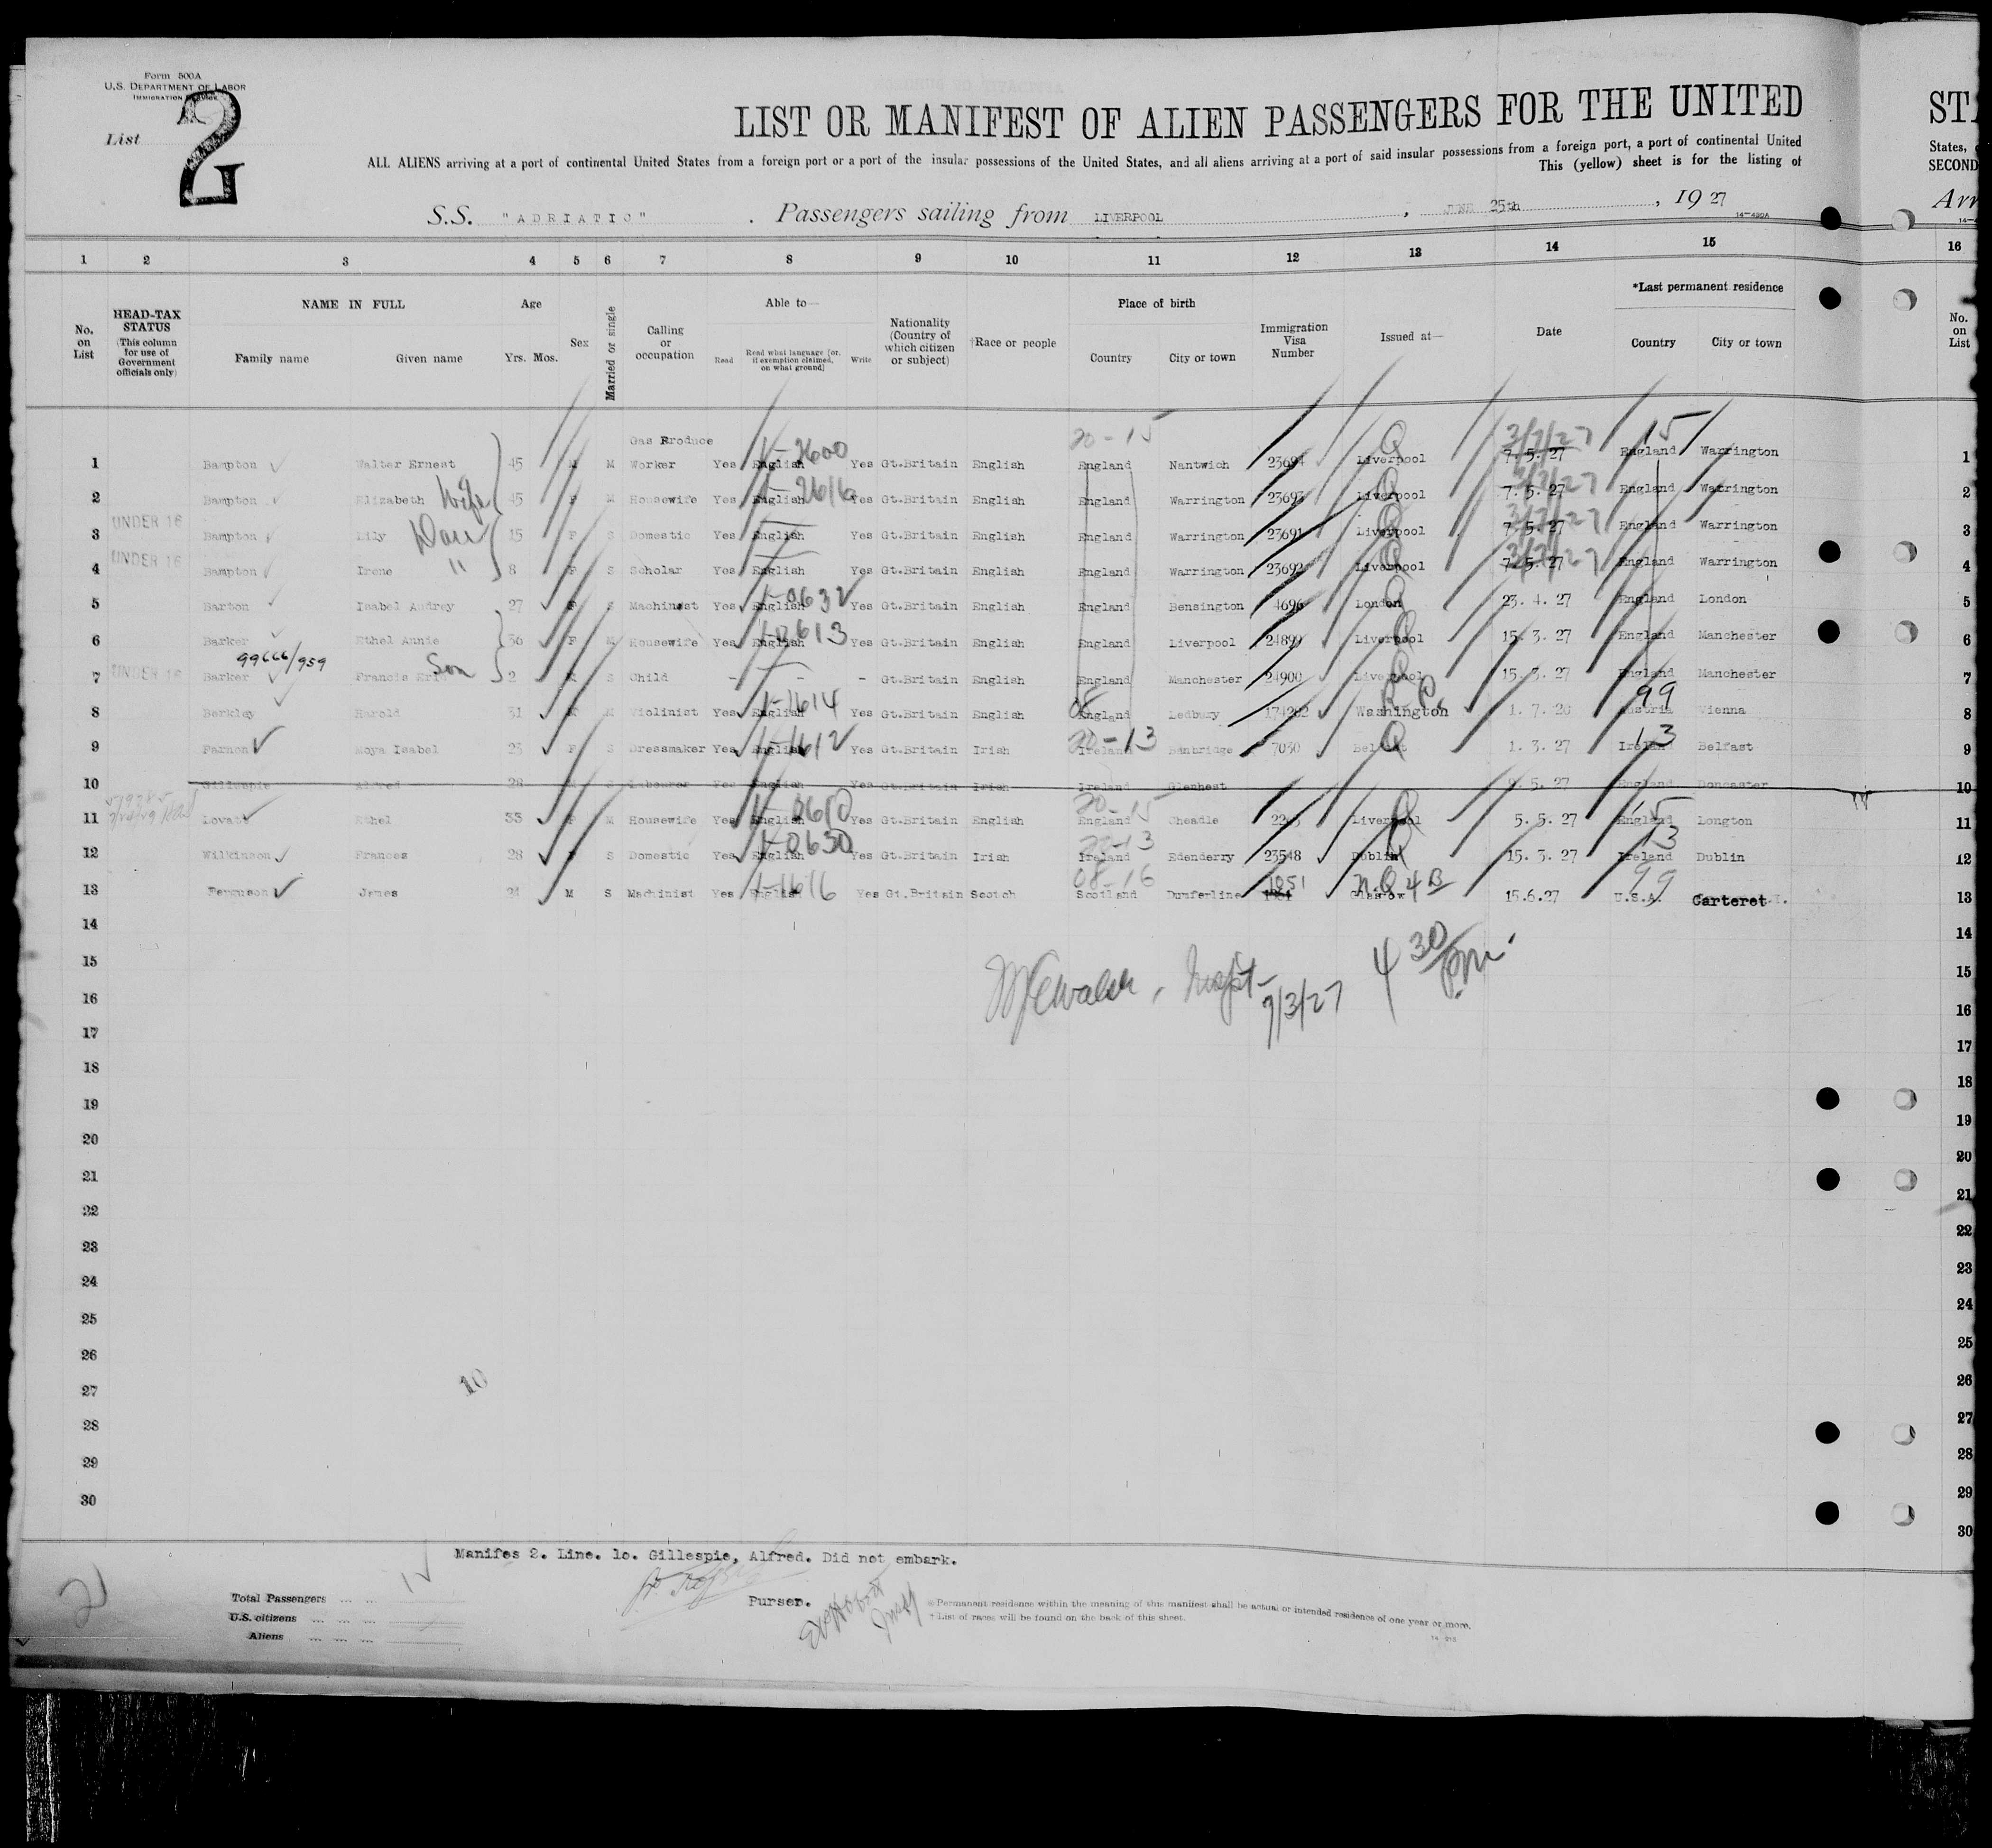 Form 500A
U.S. DEPARTMENT OF LABOR
IMMIGRATION SERVICE
List 2
LIST OR MANIFEST OF ALIEN PASSENGERS FOR THE UNITED
ST
ALL ALIENS arriving at a port of continental United States from a foreign port or a port of the insular possessions of the United States, and all aliens arriving at a port of said insular possessions from a foreign port, a port of continental United
States,
This (yellow) sheet is for the listing of
SECOND
S.S. "ADRIATIC". Passengers sailing from LIVERPOOL, JUNE 25th, 19 27
Arr
14-430A
1 2 3 4 5 6 7 8 9 10 11 12 13 14 15 16
No. on List
HEAD-TAX STATUS (This column for use of Government officials only)
NAME IN FULL Family name Given name
Age Yrs. Mos.
Sex
Married or single
Calling or occupation
Able to— Read Read what language (or, if exemption claimed, on what ground) Write
Nationality (Country of which citizen or subject)
†Race or people
Place of birth Country City or town
Immigration Visa Number
Issued at—
Date
*Last permanent residence Country City or town
No. on List
20-15 3/7/27 15
Gas Produce
1 Bampton Walter Ernest 45 M M Worker Yes English 2600 Yes Gt.Britain English England Nantwich 23694 Liverpool Q 7.5.27 England Warrington 1
3/7/27
2 Bampton Elizabeth Wife 45 F M Housewife Yes English 2616 Yes Gt.Britain English England Warrington 23693 Liverpool Q 7.5.27 England Warrington 2
UNDER 16 3/7/27
3 Bampton Lily Dau 15 F S Domestic Yes English Yes Gt.Britain English England Warrington 23691 Liverpool Q 7.5.27 England Warrington 3
UNDER 16 3/7/27
4 Bampton Irene " 8 F S Scholar Yes English Yes Gt.Britain English England Warrington 23692 Liverpool Q 7.5.27 England Warrington 4
5 Barton Isabel Audrey 27 F S Machinest Yes English 0632 Yes Gt.Britain English England Bensington 4696 London Q 23.4.27 England London 5
6 Barker Ethel Annie 36 F M Housewife Yes English 0613 Yes Gt.Britain English England Liverpool 24899 Liverpool Q 15.3.27 England Manchester 6
99666/959
UNDER 16
7 Barker Francis Eric Son 2 M S Child - - - Gt.Britain English England Manchester 24900 Liverpool Q 15.3.27 England Manchester 7
8 Berkley Harold 31 M M Violinist Yes English 1-1614 Yes Gt.Britain English 08 England Ledbury 174262 Washington 1.7.26 99 Austria Vienna 8
9 Farnon Moya Isabel 23 F S Dressmaker Yes English 1-1612 Yes Gt.Britain Irish 20-13 Ireland Banbridge 7030 Belfast Q 1.3.27 13 Ireland Belfast 9
10 Gillespie Alfred 28 M S Labourer Yes English Yes Gt.Britain Irish Ireland Glenhest 5.27 England Doncaster 10
20-15 15
11 Ethel 33 F M Housewife Yes English 0610 Yes Gt.Britain English England Cheadle Liverpool Q 5.5.27 England Longton 11
20-13 13
12 Wilkinson Frances 28 F S Domestic Yes English 0630 Yes Gt.Britain Irish Ireland Edenderry 23548 Dublin Q 15.3.27 Ireland Dublin 12
08-16 1051 99
13 Ferguson James M S Machinist Yes English 1-1616 Yes Gt.Britain Scotch Scotland Dumferline Glasgow N.Q 4 B 15.6.27 U.S.A. Carteret 13
14 14
15 15
16 16
Walsh, Inspt- 7/3/27 4 30 pm
17 17
18 18
19 19
20 20
21 21
22 22
23 23
24 24
25 25
26 26
27 27
10
28 28
29 29
30 30
Manifes 2. Line. 10. Gillespie, Alfred. Did not embark.
Purser.
2
Total Passengers
U.S. citizens
Aliens
*Permanent residence within the meaning of this manifest shall be actual or intended residence of one year or more.
†List of races will be found on the back of this sheet.